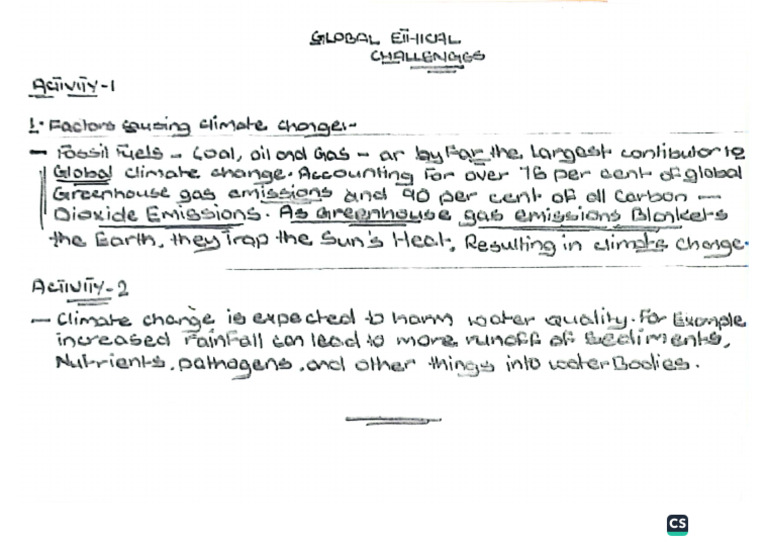 GLOBAL ETHICAL
CHALLENGES
Activity-1
1. Factors causing climate change:-
- Fossil Fuels - Coal, oil and Gas - ar by Far the largest contibutor to
Global climate change. Accounting For over 76 per cent of global
Greenhouse gas emissions and 90 per cent of all Carbon -
Dioxide Emissions. As Greenhouse gas emissions Blankets
the Earth, they Trap the Sun's Heat, Resulting in climate change.
Activity-2
- Climate change is expected to harm water quality. For Example
increased rainfall can lead to more runoff of Sediments,
Nutrients, pathogens, and other things into water Bodies.
CS